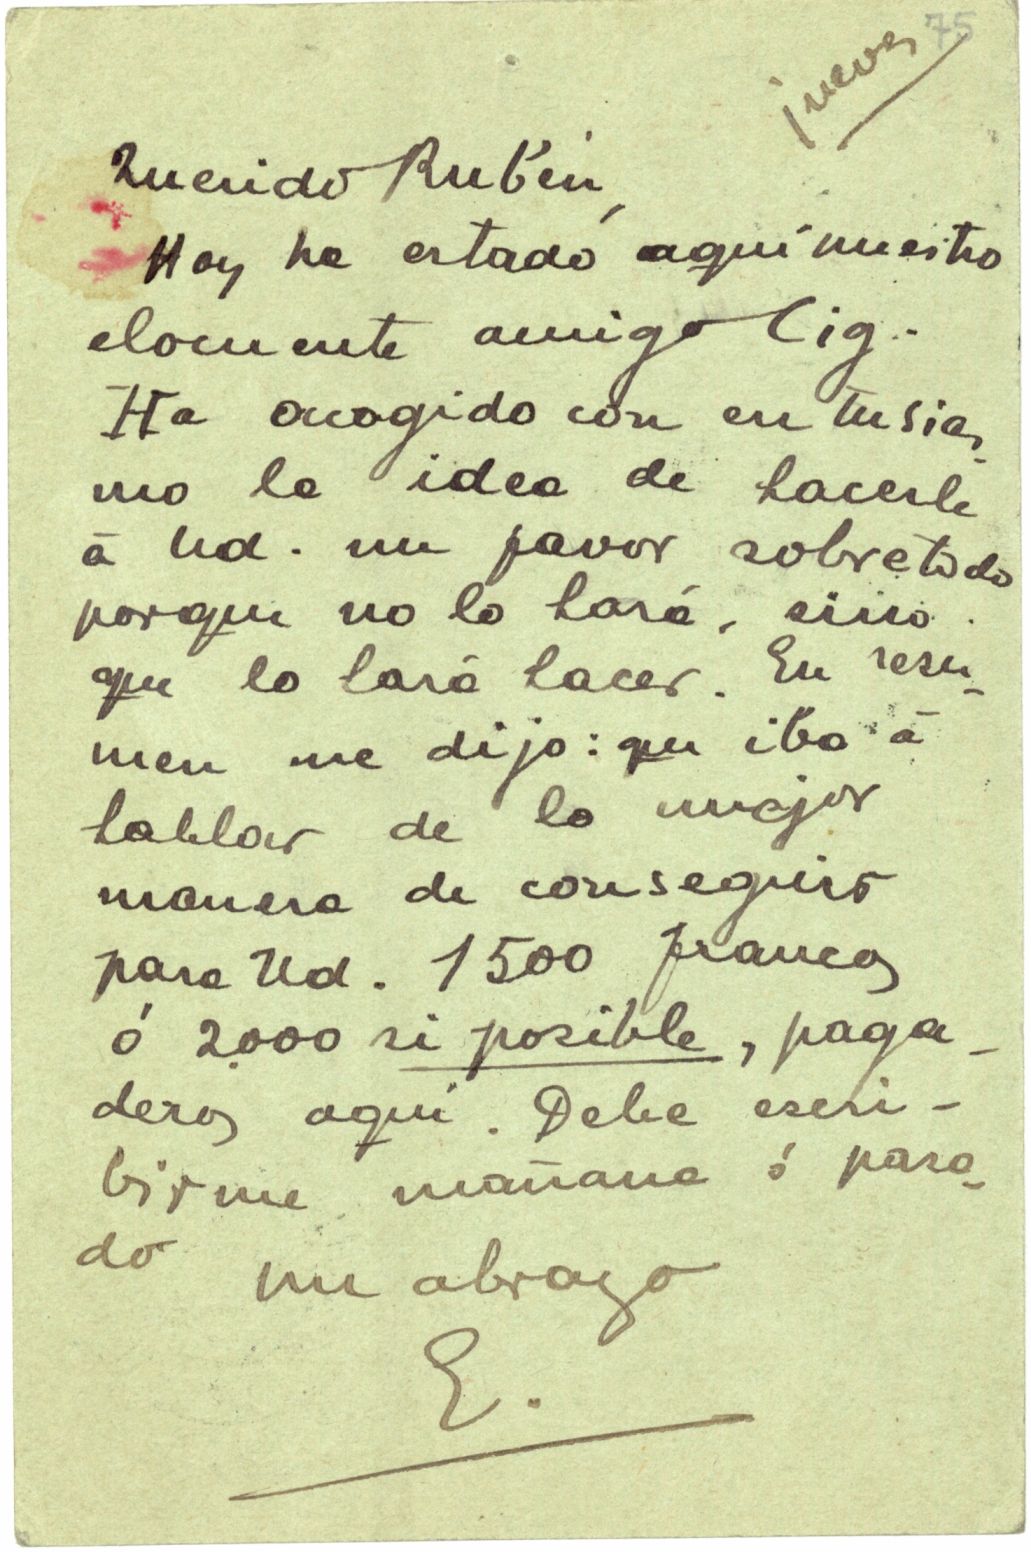 75
jueves
Querido Rubén,
Hoy ha estado aquí nuestro
elocuente amigo Cig.
Ha acogido con entusias
mo la idea de hacerle
á Ud. un favor sobretodo
porque no lo hará, sino
que lo hará hacer. En resu-
men me dijo: que iba á
hablar de la mejor
manera de conseguir
para Ud. 1500 francos
ó 2.000 si posible, paga-
deros aquí. Debe escri-
birme mañana ó pasa-
do
un abrazo
E.